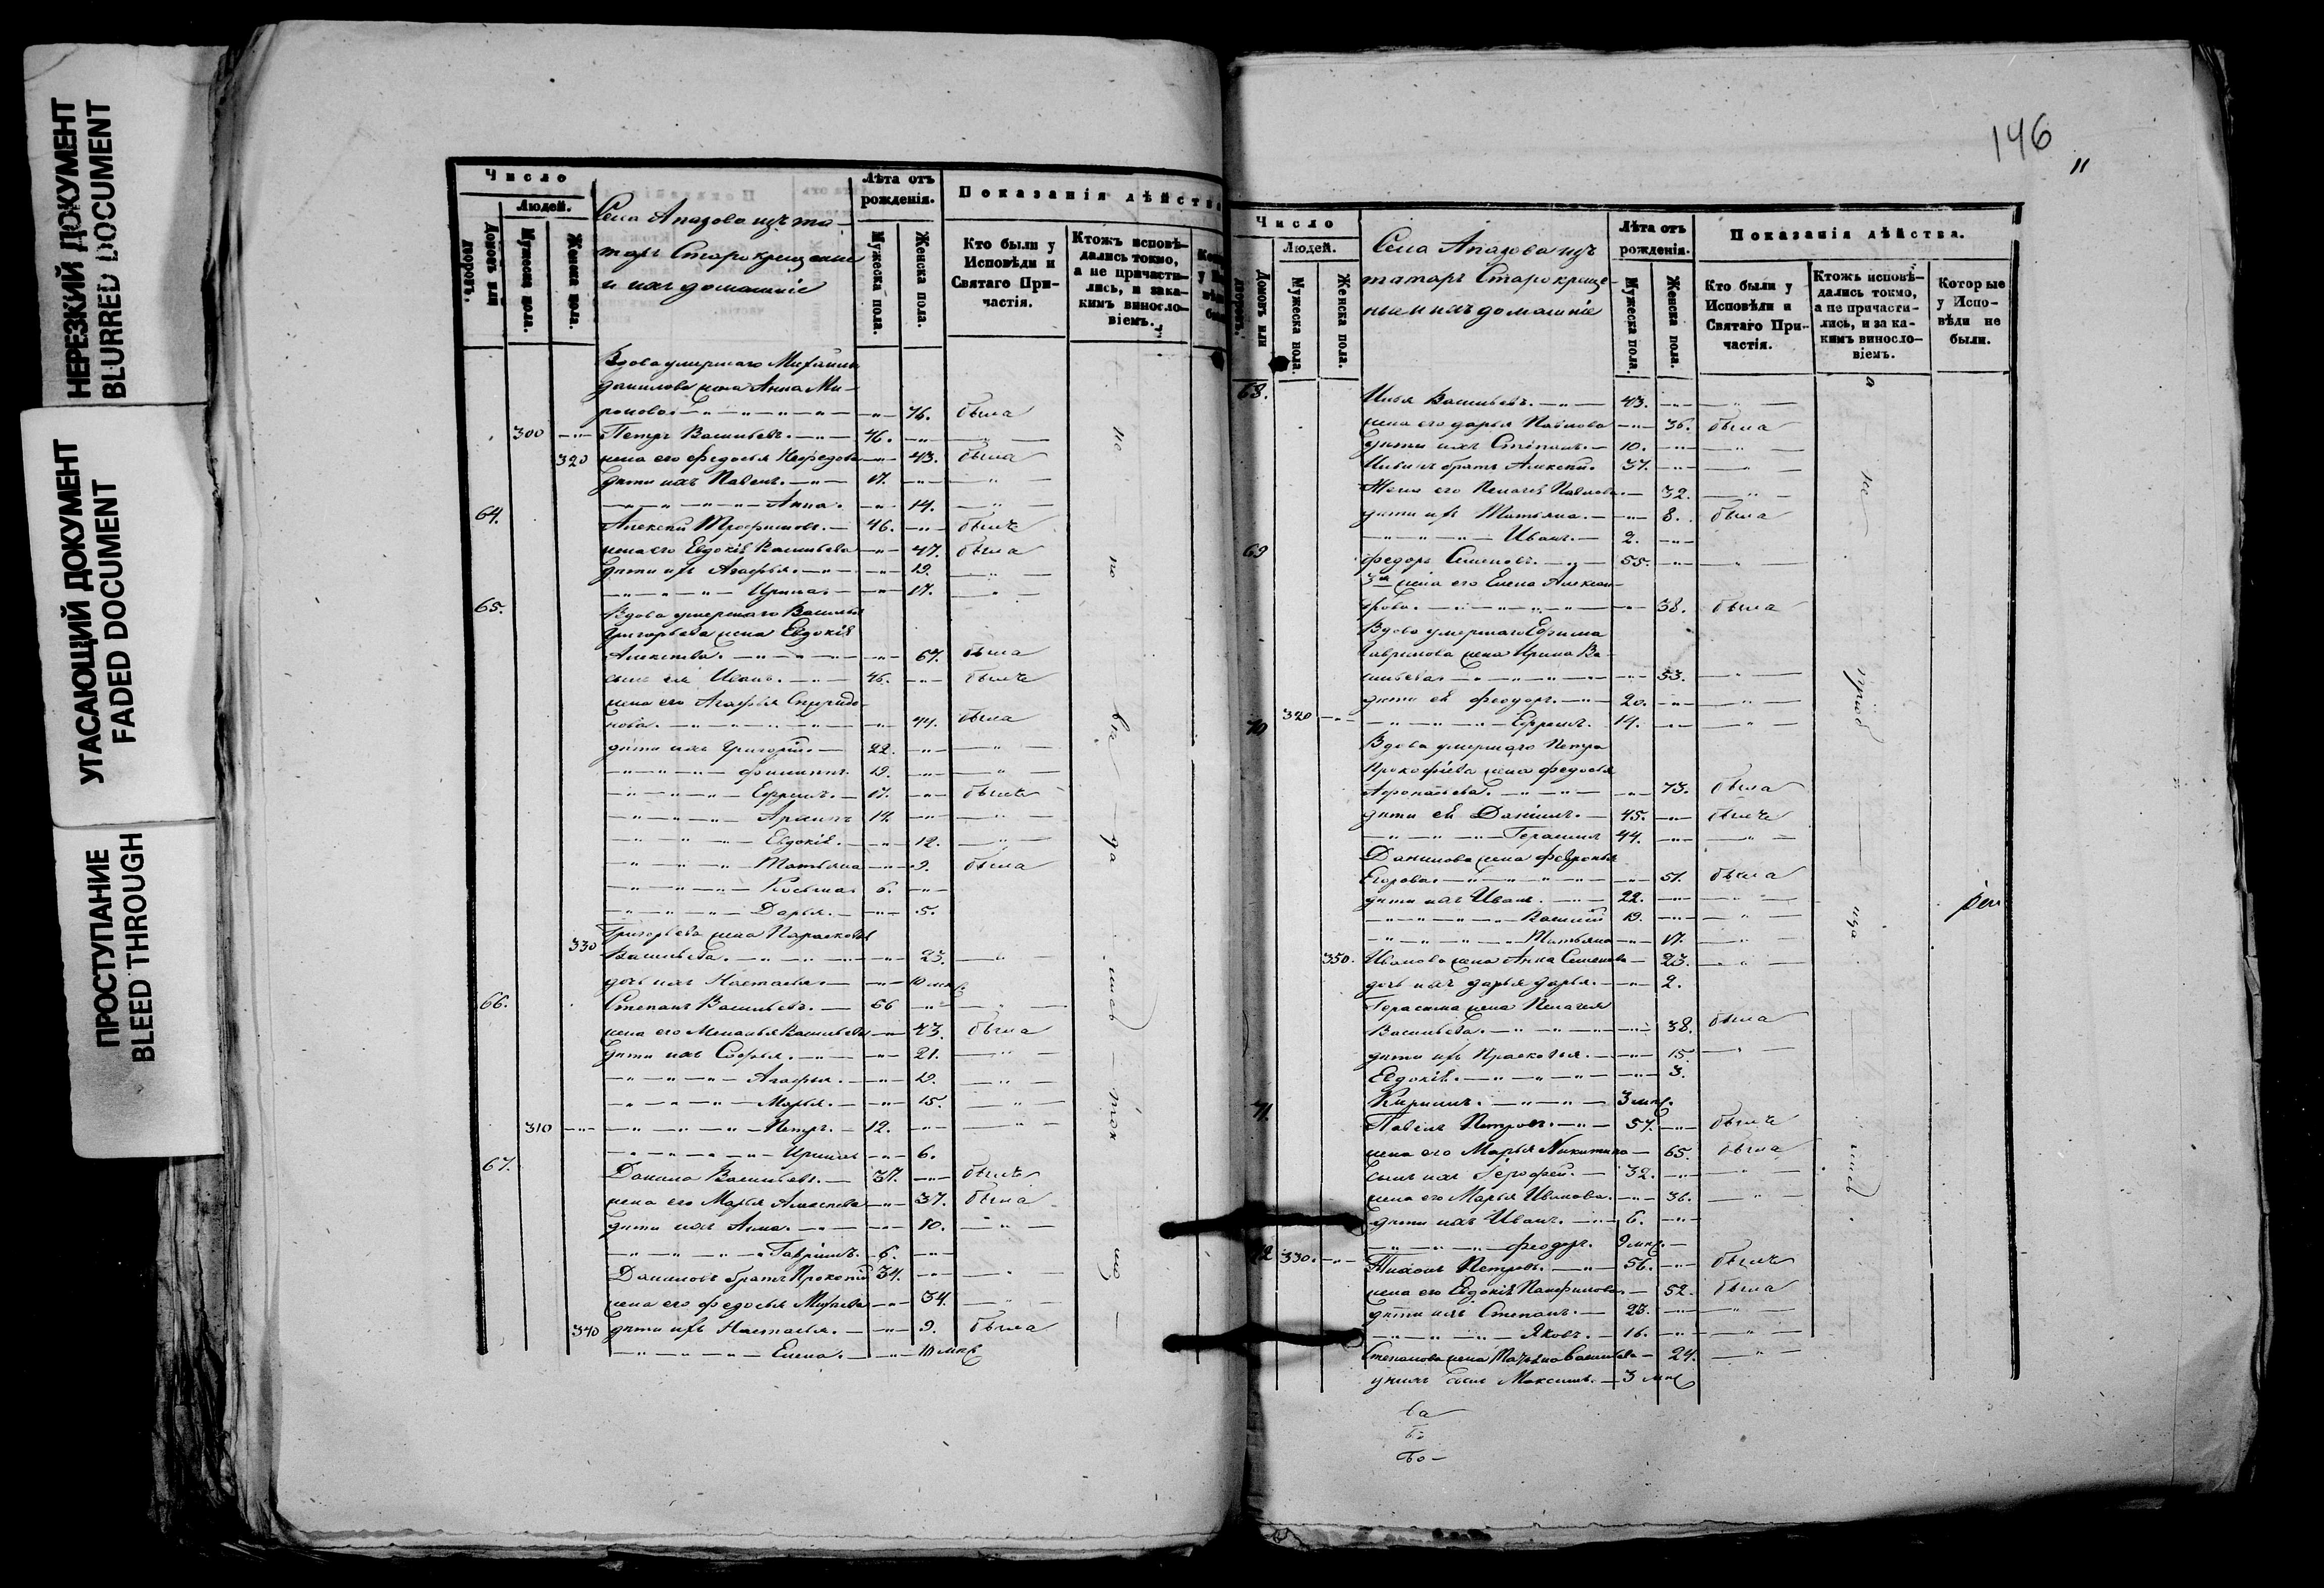 НЕРЕЗКИЙ ДОКУМЕНТ
BLURRED DOCUMENT
УГАСАЮЩИЙ ДОКУМЕНТ
FADED DOCUMENT
ПРОСТУПАНИЕ
BLEED THROUGH
Число
Людей.
Домовъ или дворовъ.
Мужеска пола.
Женска пола.
Села Апазова изъ та
таръ Старокрещеные
и ихъ домашніе
Лѣта отъ рожденія.
Мужеска пола.
Женска пола.
Показанія дѣйства
Кто были у Исповѣди и Святаго Причастія.
Ктожъ исповѣдались токмо, а не причастились, и за какимъ винословіемъ.
Вдова умершаго Михаила
Данилова жена Анна Ми-
ронова 76. была
300 Петръ Васильевъ. 46.
320 жена его Федосья 43. была
дѣти ихъ Павелъ. 17.
Анна. 14.
64. Алексѣй Трофимовъ. 46. былъ
жена его Евдокія Васильева 47. была
дѣти ихъ Агафья. 19.
Ирина. 17.
65. Вдова умершаго Василья
Григорьева жена Евдокія
Алексѣева. 67. была
сынъ ея Иванъ. 46. былъ
жена его Агафья Спиридо-
нова. 44. была
дѣти ихъ Григорій. 22.
Филиппъ. 19.
Ефремъ. 17. былъ
14.
Евдокія. 12.
Татьяна 9. была
Козьма 6.
Дарья. 5.
Григорьева жена Парасковья
330 Васильева. 23.
дочь ихъ Настасья. 10 мѣс
66. Степанъ Васильевъ. 56
жена его Меланья Васильева 43. была
дѣти ихъ Софья. 21.
Агафья. 19.
Марья. 15.
310 Петръ. 12.
Ирина 6.
67. Данила Васильевъ. 37. былъ
жена его Марья Алексѣева 37. была
дѣти ихъ Анна. 10.
Гаврiилъ. 6.
Даниловъ братъ Прокопій 34.
жена его Федосья 34.
340 дѣти ихъ Настасья. 9. была
Елена. 10 мѣс
146
11
Число
Людей.
Домовъ или дворовъ.
Мужеска пола.
Женска пола.
Села Апазова изъ
татаръ Старокреще-
ные и ихъ домашніе
Лѣта отъ рожденія.
Мужеска пола.
Женска пола.
Показанія дѣйства.
Кто были у Исповѣди и Святаго Причастія.
Ктожъ исповѣдались токмо, а не причастились, и за какимъ винословіемъ.
Которые у Исповѣди не были.
68. Илья Васильевъ. 43.
жена его Дарья Павлова 36. была
дѣти ихъ Степанъ. 10.
Ильинъ братъ Алексѣй. 37.
Жена его Пелагія Павлова. 32.
дѣти ихъ Татьяна. 8. была
Иванъ. 2.
69 Федоръ Семеновъ. 55.
3я жена его Елена Алексан-
дрова. 38. была
Вдова умершаго Ефима
Гаврилова жена Ирина Ва-
сильева 53.
дѣти ей Феодоръ. 20.
320 Ефремъ. 14.
70 Вдова умершаго Петра
Прокофьева жена Федосья
Афонасьева. 73. была
дѣти ей Данiилъ. 45. былъ
Герасимъ 44.
Данилова жена Февронья
Егорова 51. была
дѣти ихъ Иванъ. 22.
Василій 19.
Татьяна 17.
350. Иванова жена Анна Семенова 23.
дочь ихъ Дарья Дарья. 2.
Герасима жена Пелагія
Васильева. 38. была
дѣти ихъ Прасковья. 15.
Евдокія. 3.
Кирилъ. 3 мѣс.
71. Павелъ Петровъ. 57. былъ
жена его Марья Никитина 65. была
сынъ ихъ Ерофей. 32.
жена его Марья Иванова. 36.
дѣти ихъ Иванъ. 6.
Феодоръ. 9 мѣс.
72 330. Тихонъ Петровъ. 56. былъ
жена его Евдокія Панфилова 52. была
дѣти ихъ Степанъ. 23.
Яковъ. 16.
Степанова жена Татьяна Васильева 24.
у нихъ сынъ Максимъ. 3 мѣс